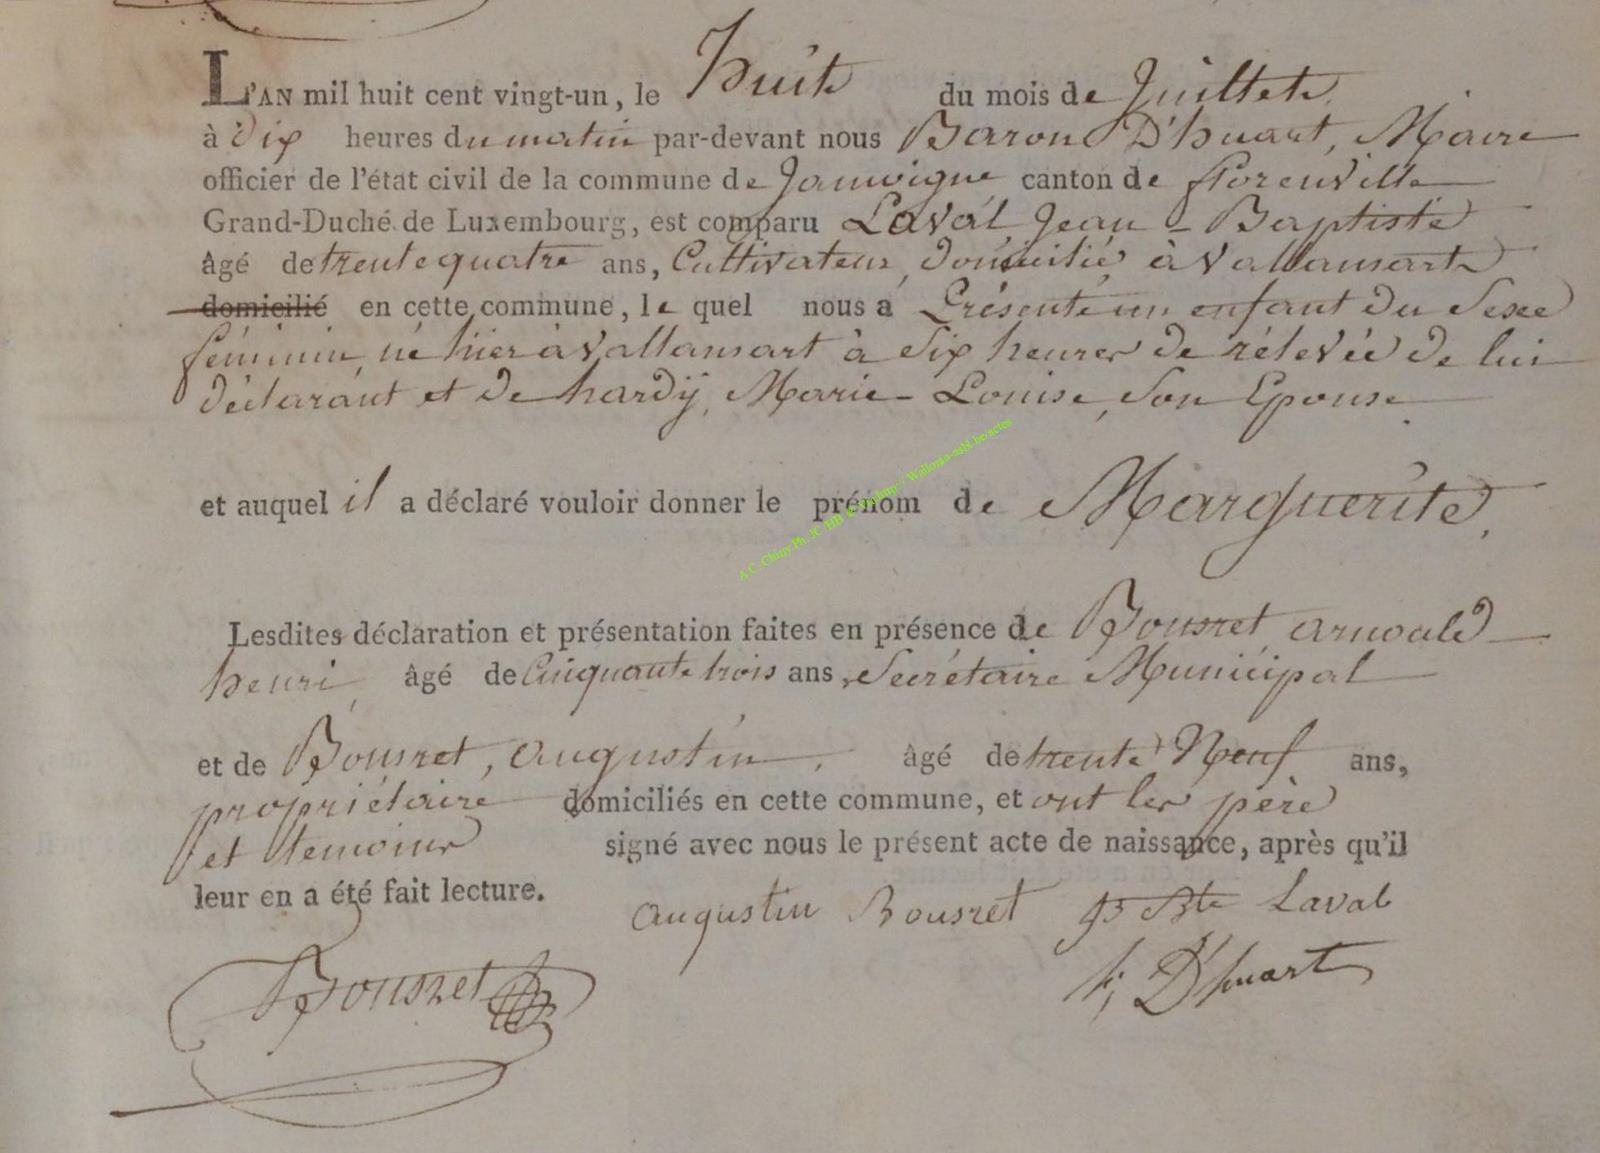 L'AN mil huit cent vingt-un, le huit du mois de Juillet
à Dix heures du matin par-devant nous Baron D'huart, Maire
officier de l'état civil de la commune de Jamoigne canton de florenville
Grand-Duché de Luxembourg, est comparu Laval Jean - Baptiste
âgé de trente quatre ans, Cultivateur, domicilié à Vallansart
domicilié en cette commune, le quel nous a Présenté un enfant du Sexe
féminin, né hier à Vallansart à Six heures de rélevée de lui
déclarant et de hardÿ, Marie - Louise, Son Epouse
et auquel il a déclaré vouloir donner le prénom de Marguerite,
Lesdites déclaration et présentation faites en présence de Bousret, arnould
henri, âgé de Cinquante trois ans, Secrétaire Municipal
et de Bousret, augustin, âgé de trente Neuf ans,
propriétaire domiciliés en cette commune, et ont les père
et temoins signé avec nous le présent acte de naissance, après qu'il
leur en a été fait lecture.
augustin Bousret J Bte Laval
Bousret D'huart
A.C. Chiny Ph. JC HB // Wallonia-asbl.be/actes